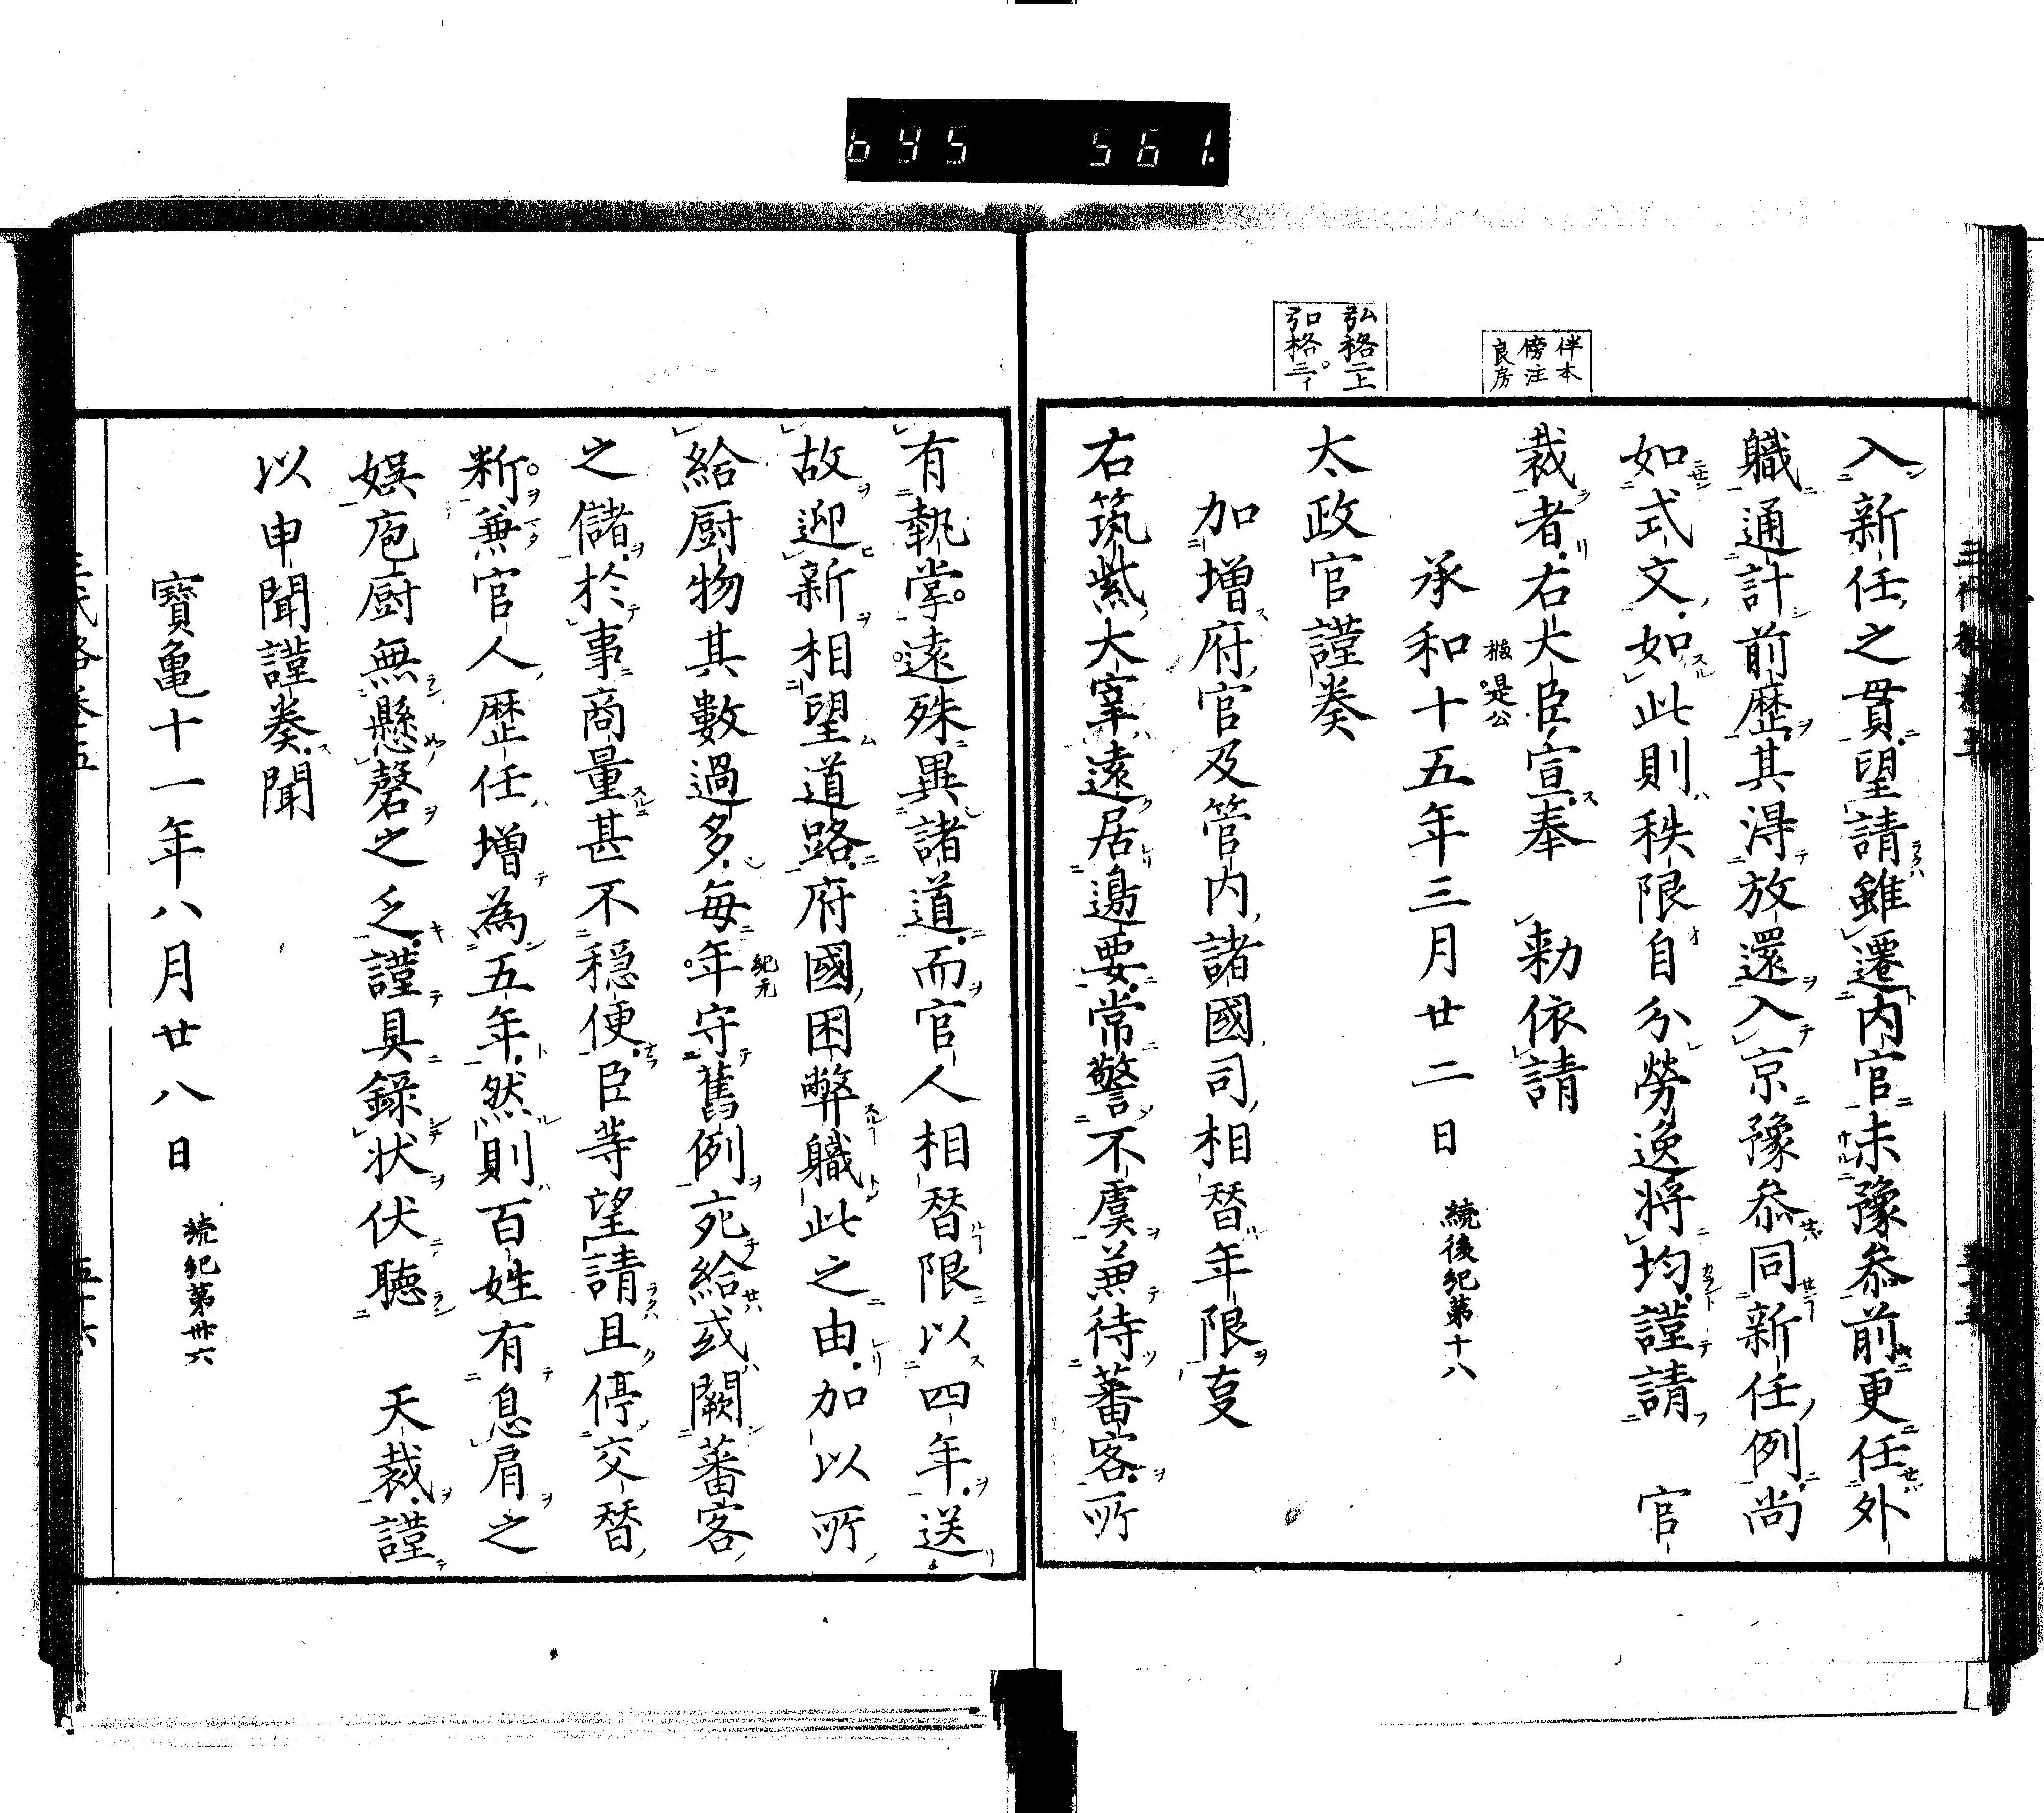 695 561.
伴本
傍注
良房
弘格二上
弘格三
入新任之貫望請雖遷内官未豫叅前更任外
職通計前歴其淂放還入京豫叅同新任例尚
如式文如此則秩限自分勞逸将均謹請 官
裁者右大臣宣奉 勅依請
是公
承和十五年三月廿二日 続後紀第十八
太政官謹奏
加増府官及管内諸國司相替年限㕝
右筑紫大宰遠居邊要常警不虞兼待蕃客所
有執掌遠殊異諸道而官人相替限以四年送
故迎新相望道路府國困弊職此之由加以所
給厨物其數過多毎年守舊例充給或闕蕃客
紀无
之儲於事商量甚不穏便臣等望請且停交替
新兼官人歴任増為五年然則百姓有息肩之
娯庖厨無懸磬之乏謹具録状伏聴 天裁謹
以申聞謹奏聞
寶亀十一年八月廿八日 続紀第卅六